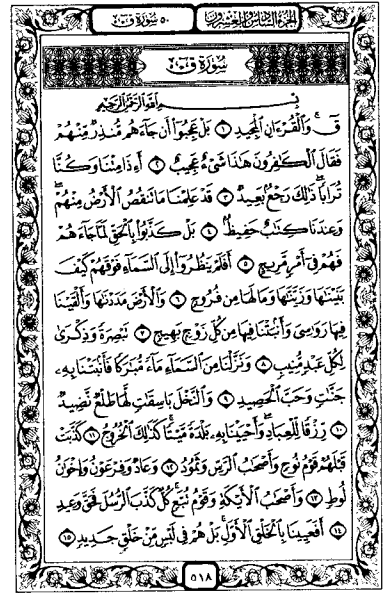 الجزء السادس والعشرون ٥٠ سورة ق
سورة ق
بسم الله الرحمن الرحيم
قٓۚ وَٱلْقُرْءَانِ ٱلْمَجِيدِ ١ بَلْ عَجِبُوٓا۟ أَن جَآءَهُم مُّنذِرٌ مِّنْهُمْ
فَقَالَ ٱلْكَٰفِرُونَ هَٰذَا شَىْءٌ عَجِيبٌ ٢ أَءِذَا مِتْنَا وَكُنَّا
تُرَابًا ذَٰلِكَ رَجْعٌۢ بَعِيدٌ ٣ قَدْ عَلِمْنَا مَا تَنقُصُ ٱلْأَرْضُ مِنْهُمْ
وَعِندَنَا كِتَٰبٌ حَفِيظٌۢ ٤ بَلْ كَذَّبُوا۟ بِٱلْحَقِّ لَمَّا جَآءَهُمْ
فَهُمْ فِىٓ أَمْرٍ مَّرِيجٍ ٥ أَفَلَمْ يَنظُرُوٓا۟ إِلَى ٱلسَّمَآءِ فَوْقَهُمْ كَيْفَ
بَنَيْنَٰهَا وَزَيَّنَّٰهَا وَمَا لَهَا مِن فُرُوجٍ ٦ وَٱلْأَرْضَ مَدَدْنَٰهَا وَأَلْقَيْنَا
فِيهَا رَوَٰسِىَ وَأَنۢبَتْنَا فِيهَا مِن كُلِّ زَوْجٍۭ بَهِيجٍ ٧ تَبْصِرَةً وَذِكْرَىٰ
لِكُلِّ عَبْدٍ مُّنِيبٍ ٨ وَنَزَّلْنَا مِنَ ٱلسَّمَآءِ مَآءً مُّبَٰرَكًا فَأَنۢبَتْنَا بِهِۦ
جَنَّٰتٍ وَحَبَّ ٱلْحَصِيدِ ٩ وَٱلنَّخْلَ بَاسِقَٰتٍ لَّهَا طَلْعٌ نَّضِيدٌ
١٠ رِّزْقًا لِّلْعِبَادِ وَأَحْيَيْنَا بِهِۦ بَلْدَةً مَّيْتًا كَذَٰلِكَ ٱلْخُرُوجُ ١١ كَذَّبَتْ
قَبْلَهُمْ قَوْمُ نُوحٍ وَأَصْحَٰبُ ٱلرَّسِّ وَثَمُودُ ١٢ وَعَادٌ وَفِرْعَوْنُ وَإِخْوَٰنُ
لُوطٍ ١٣ وَأَصْحَٰبُ ٱلْأَيْكَةِ وَقَوْمُ تُبَّعٍ كُلٌّ كَذَّبَ ٱلرُّسُلَ فَحَقَّ وَعِيدِ
١٤ أَفَعَيِينَا بِٱلْخَلْقِ ٱلْأَوَّلِ بَلْ هُمْ فِى لَبْسٍ مِّنْ خَلْقٍ جَدِيدٍ ١٥
٥١٨